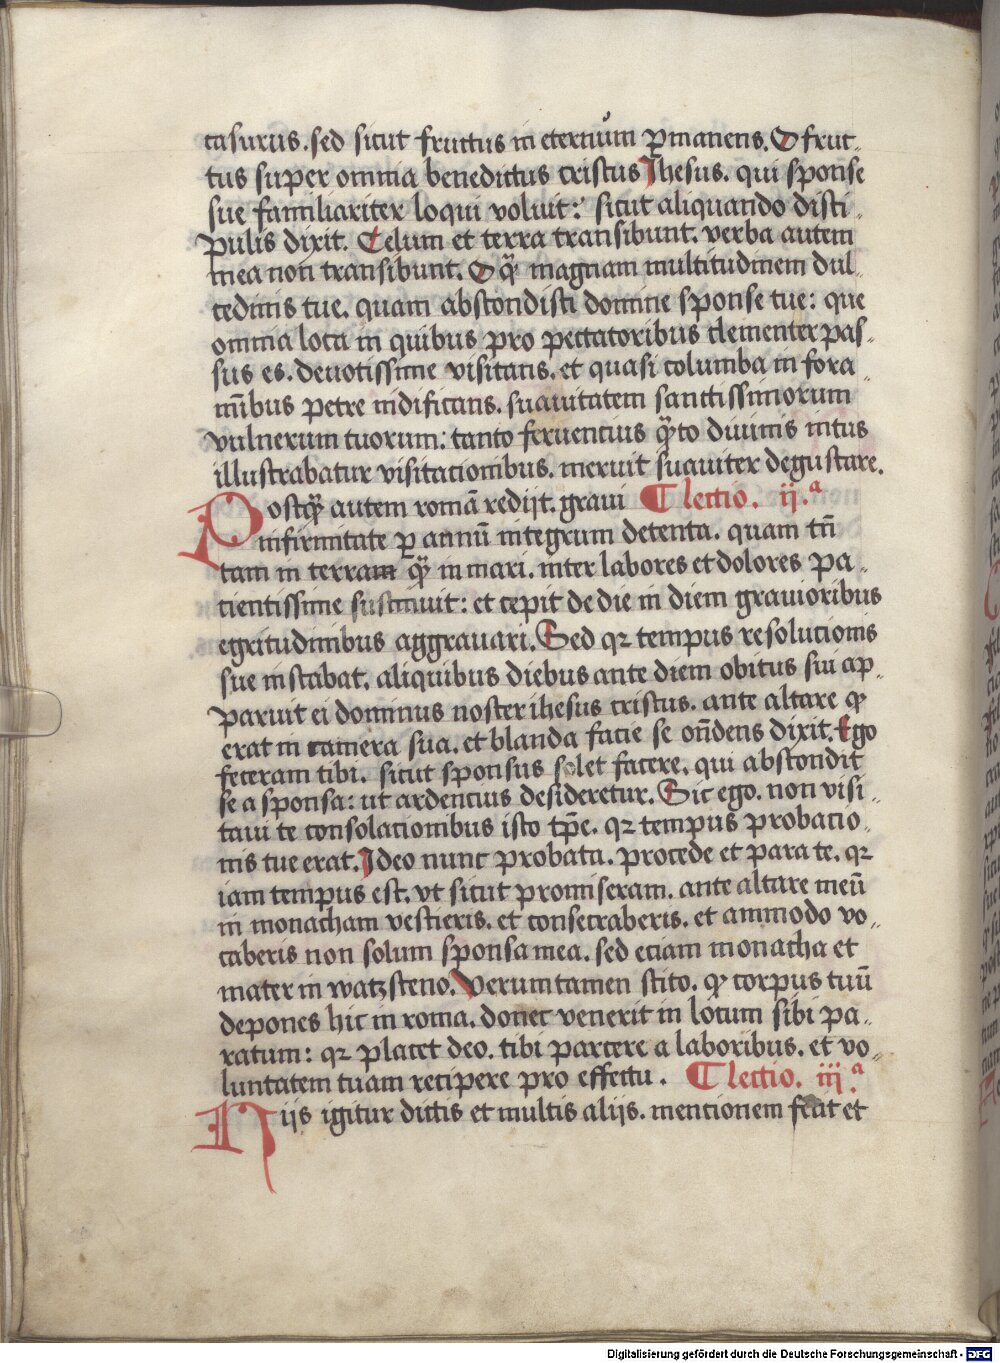 casurus. sed sicut fructus in eternum ꝑmanens. O fruc„
tus super omnia benedictus cristus Jhesus. qui sponse
sue familiariter loqui voluit: sicut aliquando disci„
pulis dixit. Celum et terra transibunt. verba autem
mea non transibunt. O qͣ magnam multitudinem dul„
cedinis tue. quam abscondisti domine sponse tue: que
omnia loca in quibus pro peccatoribus clementer pas„
sus es. deuotissime visitans. et quasi columba in fora„
mībus petre nidificans. suauitatem sanctissimorum
vulnerum tuorum: tanto feruencius qͣto diuinis intus
illustrabatur visitacionibus. meruit suauiter degustare.
Postqͣ autem romā redijt. graui ¶ lectio. ij.ª
infirmitate ꝑ annū integrum detenta. quam tn̄
tam in terram qͣ in mari. inter labores et dolores pa„
cientissime sustinuit: et cepit de die in diem grauioribus
egritudinibus aggrauari. Sed qꝛ tempus resolucionis
sue instabat. aliquibus diebus ante diem obitus sui ap„
paruit ei dominus noster ihesus cristus. ante altare qͥ
erat in camera sua. et blanda facie se on̄dens dixit. Ego
feceram tibi. sicut sponsus solet facere. qui abscondit
se a sponsa: ut ardencius desideretur. Sic ego. non visi„
taui te consolacionibus isto tp̄e. qꝛ tempus probacio„
nis tue erat. Ideo nunc probata. procede et para te. qꝛ
iam tempus est. vt sicut promiseram. ante altare meū
in monacham vestieris. et consecraberis. et ammodo vo„
caberis non solum sponsa mea. sed eciam monacha et
mater in watzsteno. Verumtamen scito. qͥ corpus tuū
depones hic in roma. donec venerit in locum sibi pa„
ratum: qꝛ placet deo. tibi parcere a laboribus. et vo„
luntatem tuam recipere pro effectu. ¶ lectio. iij.ª
Hijs igitur dictis et multis alijs. mencionem fecit et
Digitalisierung gefördert durch die Deutsche Forschungsgemeinschaft - DFG